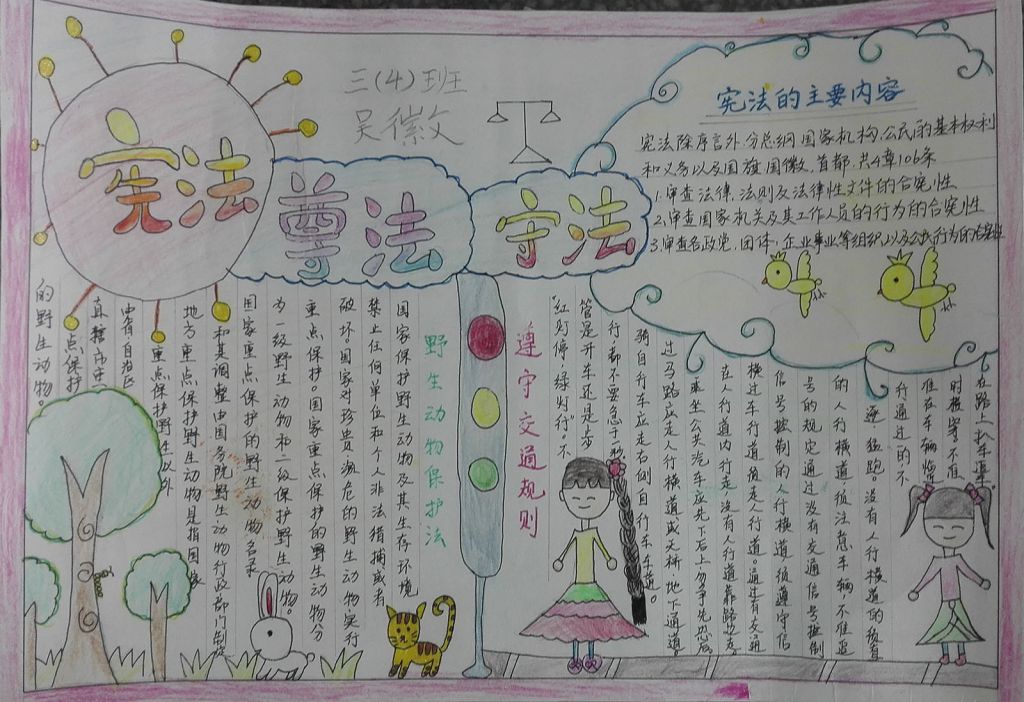 三(4)班
吴徽文
宪法
尊法
守法
宪法的主要内容
宪法除序言外,分总纲国家机构,公民的基本权利
和义务以及国旗国徽,首都,共4章106条
1.审查法律,法则及法律性文件的合宪性
2.审查国家机关及其工作人员的行为的合宪性
3.审查各政党,团体,企业事业等组织以及公民行为的合宪性
野生动物保护法
国家保护野生动物及其生存环境
禁止任何单位和个人非法猎捕或者
破坏。国家对珍贵濒危的野生动物实行
重点保护。国家重点保护的野生动物分
为一级野生动物和二级保护野生动物。
国家重点保护的野生动物名录
和其调整由国务院野生动物行政部门制定
地方重点保护野生动物是指国家
重点保护野生以外
由省自治区
直辖市
重点保护
的野生动物。
遵守交通规则
"红灯停,绿灯行"。不
管是开车还是步
行,都不要急于一秒
骑自行车应走右侧自行车车道。
过马路应走人行横道或天桥地下通道。
乘坐公共汽车应先下后上勿争先恐后。
在人行道内行走,没有人行道靠路边走。
横过车行道须走人行道。通过有交通
信号控制的人行横道,须遵守信
号的规定通过没有交通信号控制
的人行横道须注意车辆不准追
逐 猛跑。没有人行横道的须看
行通过的不
准在车辆临
时横穿不准
在路上扒车追车